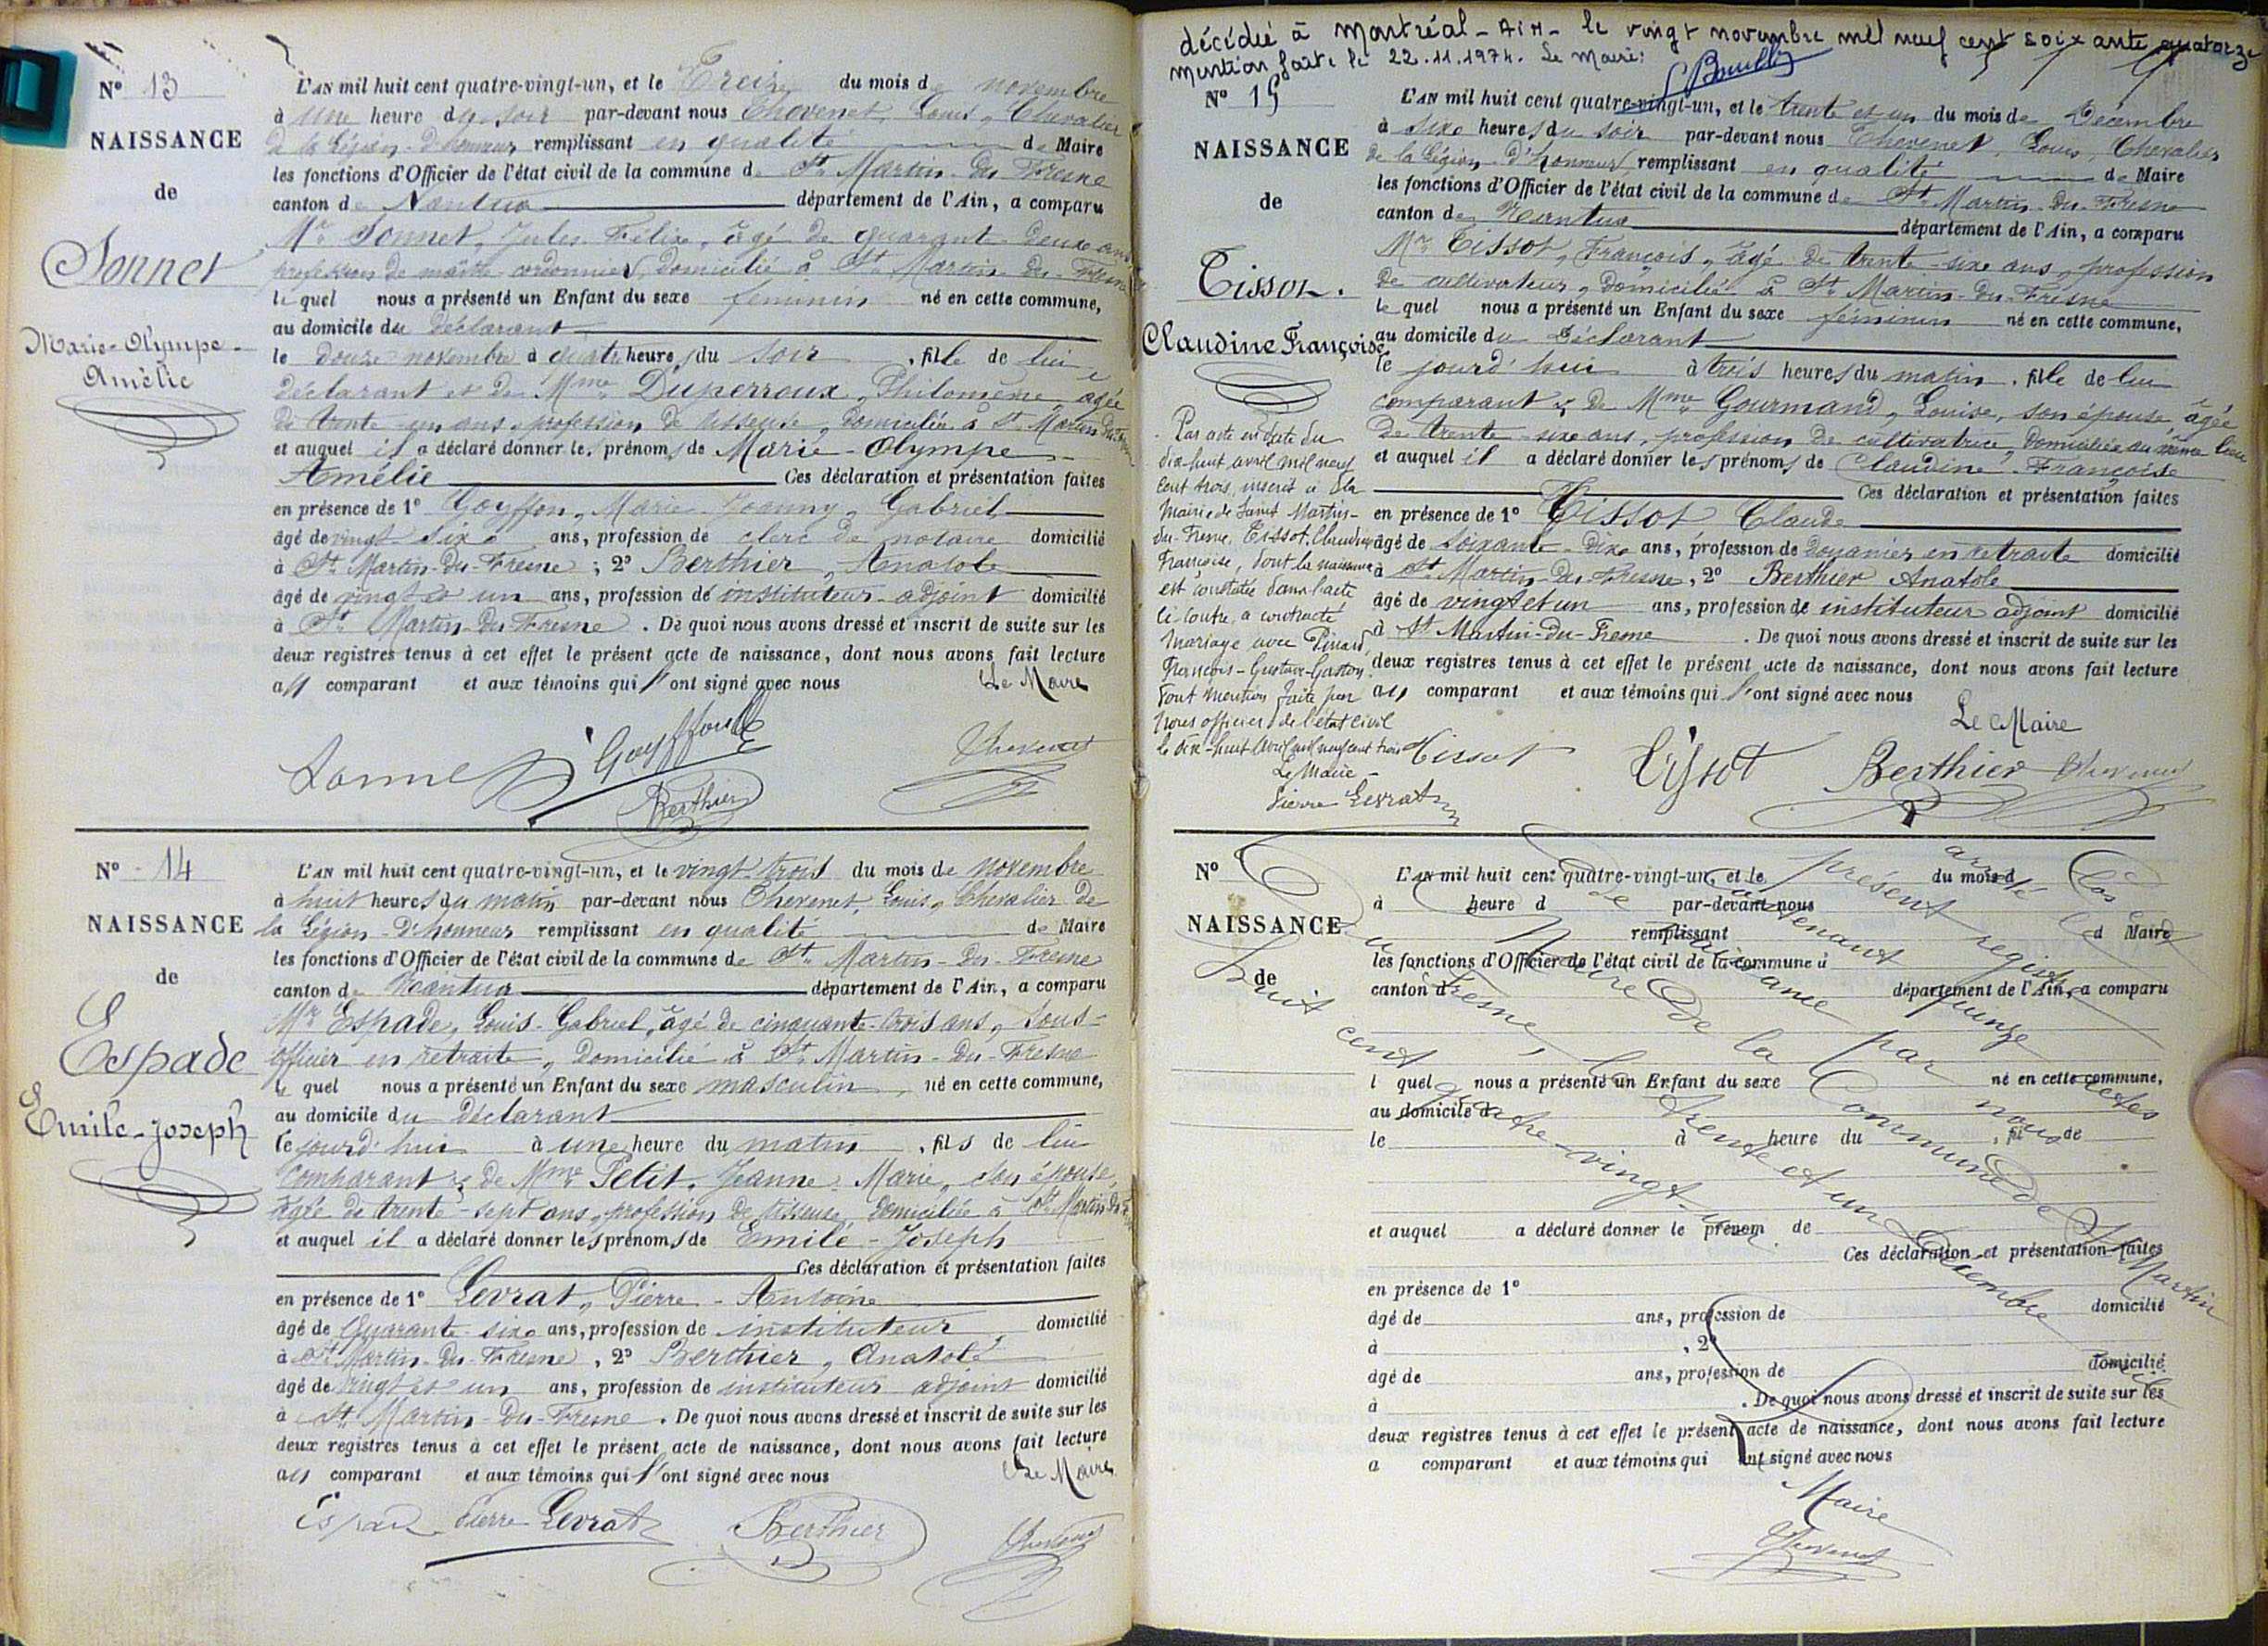 N° 13
NAISSANCE
de
Sonnet
Marie-Olympe-
Amélie
L'AN mil huit cent quatre-vingt-un, et le Treize du mois de novembre
à une heure du soir par-devant nous Chevenet, Louis, Chevalier
de la Légion-D'honneur remplissant en qualité de Maire
les fonctions d'Officier de l'état civil de la commune de St Martin-du-Fresne
canton de Nantua département de l'Ain, a comparu
Mr Sonnet, Jules Félix, âgé de quarante-deux ans
profession de maître-cordonnier, domicilié à St Martin-du-Fresne
le quel nous a présenté un Enfant du sexe féminin né en cette commune,
au domicile du déclarant
le douze novembre à quatre heures du soir, fille de lui
déclarant et de Mme Duperroux, Philomène, âgée
de trente-un ans, profession de tisseuse, domiciliée à St Martin du Fresne
et auquel il a déclaré donner les prénoms de Marie-Olympe-
Amélie Ces déclaration et présentation faites
en présence de 1° Goyffon, Marie Joanny, Gabriel
âgé de vingt-six ans, profession de clerc de notaire domicilié
à St Martin-du-Fresne ; 2° Berthier, Anatole
âgé de vingt et un ans, profession de instituteur-adjoint domicilié
à St Martin-du-Fresne. De quoi nous avons dressé et inscrit de suite sur les
deux registres tenus à cet effet le présent acte de naissance, dont nous avons fait lecture
au comparant et aux témoins qui l'ont signé avec nous
Le Maire
Sonnet Goyffon
Berthier Chevenet
N° 14
NAISSANCE
de
Espade
Emile-Joseph
L'AN mil huit cent quatre-vingt-un, et le vingt-trois du mois de novembre
à huit heures du matin par-devant nous Chevenet, Louis, Chevalier de
la Légion-D'honneur remplissant en qualité de Maire
les fonctions d'Officier de l'état civil de la commune de St Martin-du-Fresne
canton de Nantua département de l'Ain, a comparu
Mr Espade, Louis-Gabriel, âgé de cinquante-trois ans, Sous-
officier en retraite, domicilié à St Martin-du-Fresne
le quel nous a présenté un Enfant du sexe masculin, né en cette commune,
au domicile du Déclarant
le jourd'hui à une heure du matin, fils de lui
comparant & de Mme Petit, Jeanne Marie, son épouse,
âgée de trente-sept ans, profession de tisseuse, domiciliée à St Martin du F
et auquel il a déclaré donner les prénoms de Emile-Joseph
Ces déclaration et présentation faites
en présence de 1° Levrat, Pierre-Antoine
âgé de Quarante-six ans, profession de instituteur, domicilié
à St Martin-du-Fresne, 2° Berthier, Anatole
âgé de vingt et un ans, profession de instituteur adjoint domicilié
à St Martin-du-Fresne. De quoi nous avons dressé et inscrit de suite sur les
deux registres tenus à cet effet le présent acte de naissance, dont nous avons fait lecture
au comparant et aux témoins qui l'ont signé avec nous
Le Maire
Espade Pierre Levrat Berthier Chevenet
décédée à Montréal-Ain-le vingt novembre mil neuf cent soixante quatorze
mention faite le 22.11.1974. Le Maire:
N° 15
NAISSANCE
de
Tissot.
Claudine Françoise
Par acte en date du
dix-huit avril mil neuf
cent trois, inscrit à la
Mairie de Saint Martin-
du-Fresne, Tissot, Claudine
Françoise, dont la naissance
est constatée dans l'acte
ci contre, a contracté
Mariage avec Pinard,
François-Gustave-Gaston.
Dont mention faite par
nous officier de l'état civil
le dix-huit avril mil neuf cent trois
Le Maire-
Pierre Levrat
L'AN mil huit cent quatre-vingt-un, et le trente et un du mois de Décembre
à six heures du soir par-devant nous Chevenet, Louis, Chevalier
de la Légion-d'honneur, remplissant en qualité de Maire
les fonctions d'Officier de l'état civil de la commune de St Martin-du-Fresne
canton de Nantua département de l'Ain, a comparu
Mr Tissot, François, âgé de trente-six ans, profession
de cultivateur, domicilié à St Martin-du-Fresne
le quel nous a présenté un Enfant du sexe féminin né en cette commune,
au domicile du Déclarant
le jourd'hui à trois heures du matin, fille de lui
comparant & de Mme Gourmand, Louise, son épouse, âgée
de trente-six ans, profession de cultivatrice, domiciliée au même lieu
et auquel il a déclaré donner les prénoms de Claudine-Françoise
Ces déclaration et présentation faites
en présence de 1° Tissot Claude
âgé de soixante-dix ans, profession de Douanier en retraite domicilié
à St Martin-du-Fresne, 2° Berthier Anatole
âgé de vingt et un ans, profession de instituteur adjoint domicilié
à St Martin-du-Fresne. De quoi nous avons dressé et inscrit de suite sur les
deux registres tenus à cet effet le présent acte de naissance, dont nous avons fait lecture
au comparant et aux témoins qui l'ont signé avec nous
Le Maire
Tissot Tissot Berthier Chevenet
N°
NAISSANCE
de
L'AN mil huit cent quatre-vingt-un, et le du mois d
à heure d par-devant nous
remplissant d Maire
les fonctions d'Officier de l'état civil de la commune d
canton d département de l'Ain, a comparu
l quel nous a présenté un Enfant du sexe né en cette commune,
au domicile d
le à heure du , fil de
et auquel a déclaré donner le prénom de
Ces déclaration et présentation faites
en présence de 1°
âgé de ans, profession de domicilié
à , 2°
âgé de ans, profession de domicilié
à . De quoi nous avons dressé et inscrit de suite sur les
deux registres tenus à cet effet le présent acte de naissance, dont nous avons fait lecture
a comparant et aux témoins qui ont signé avec nous
Clos et arrêté le présent registre
contenant quinze actes
de naissance par nous
Maire de la Commune de St Martin
du Fresne, le trente et un Décembre mil
huit cent quatre-vingt-un.
Maire
Chevenet